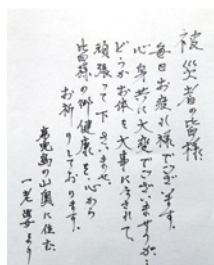 被災者の皆様
毎日お疲れ様でございます。
心身共に大変でございますが、
どうかお体を大事になされて、
頑張って下さいませ。
皆様の御健康を、心から
お祈りしております。
鹿児島の山奥に住む
一老婆より